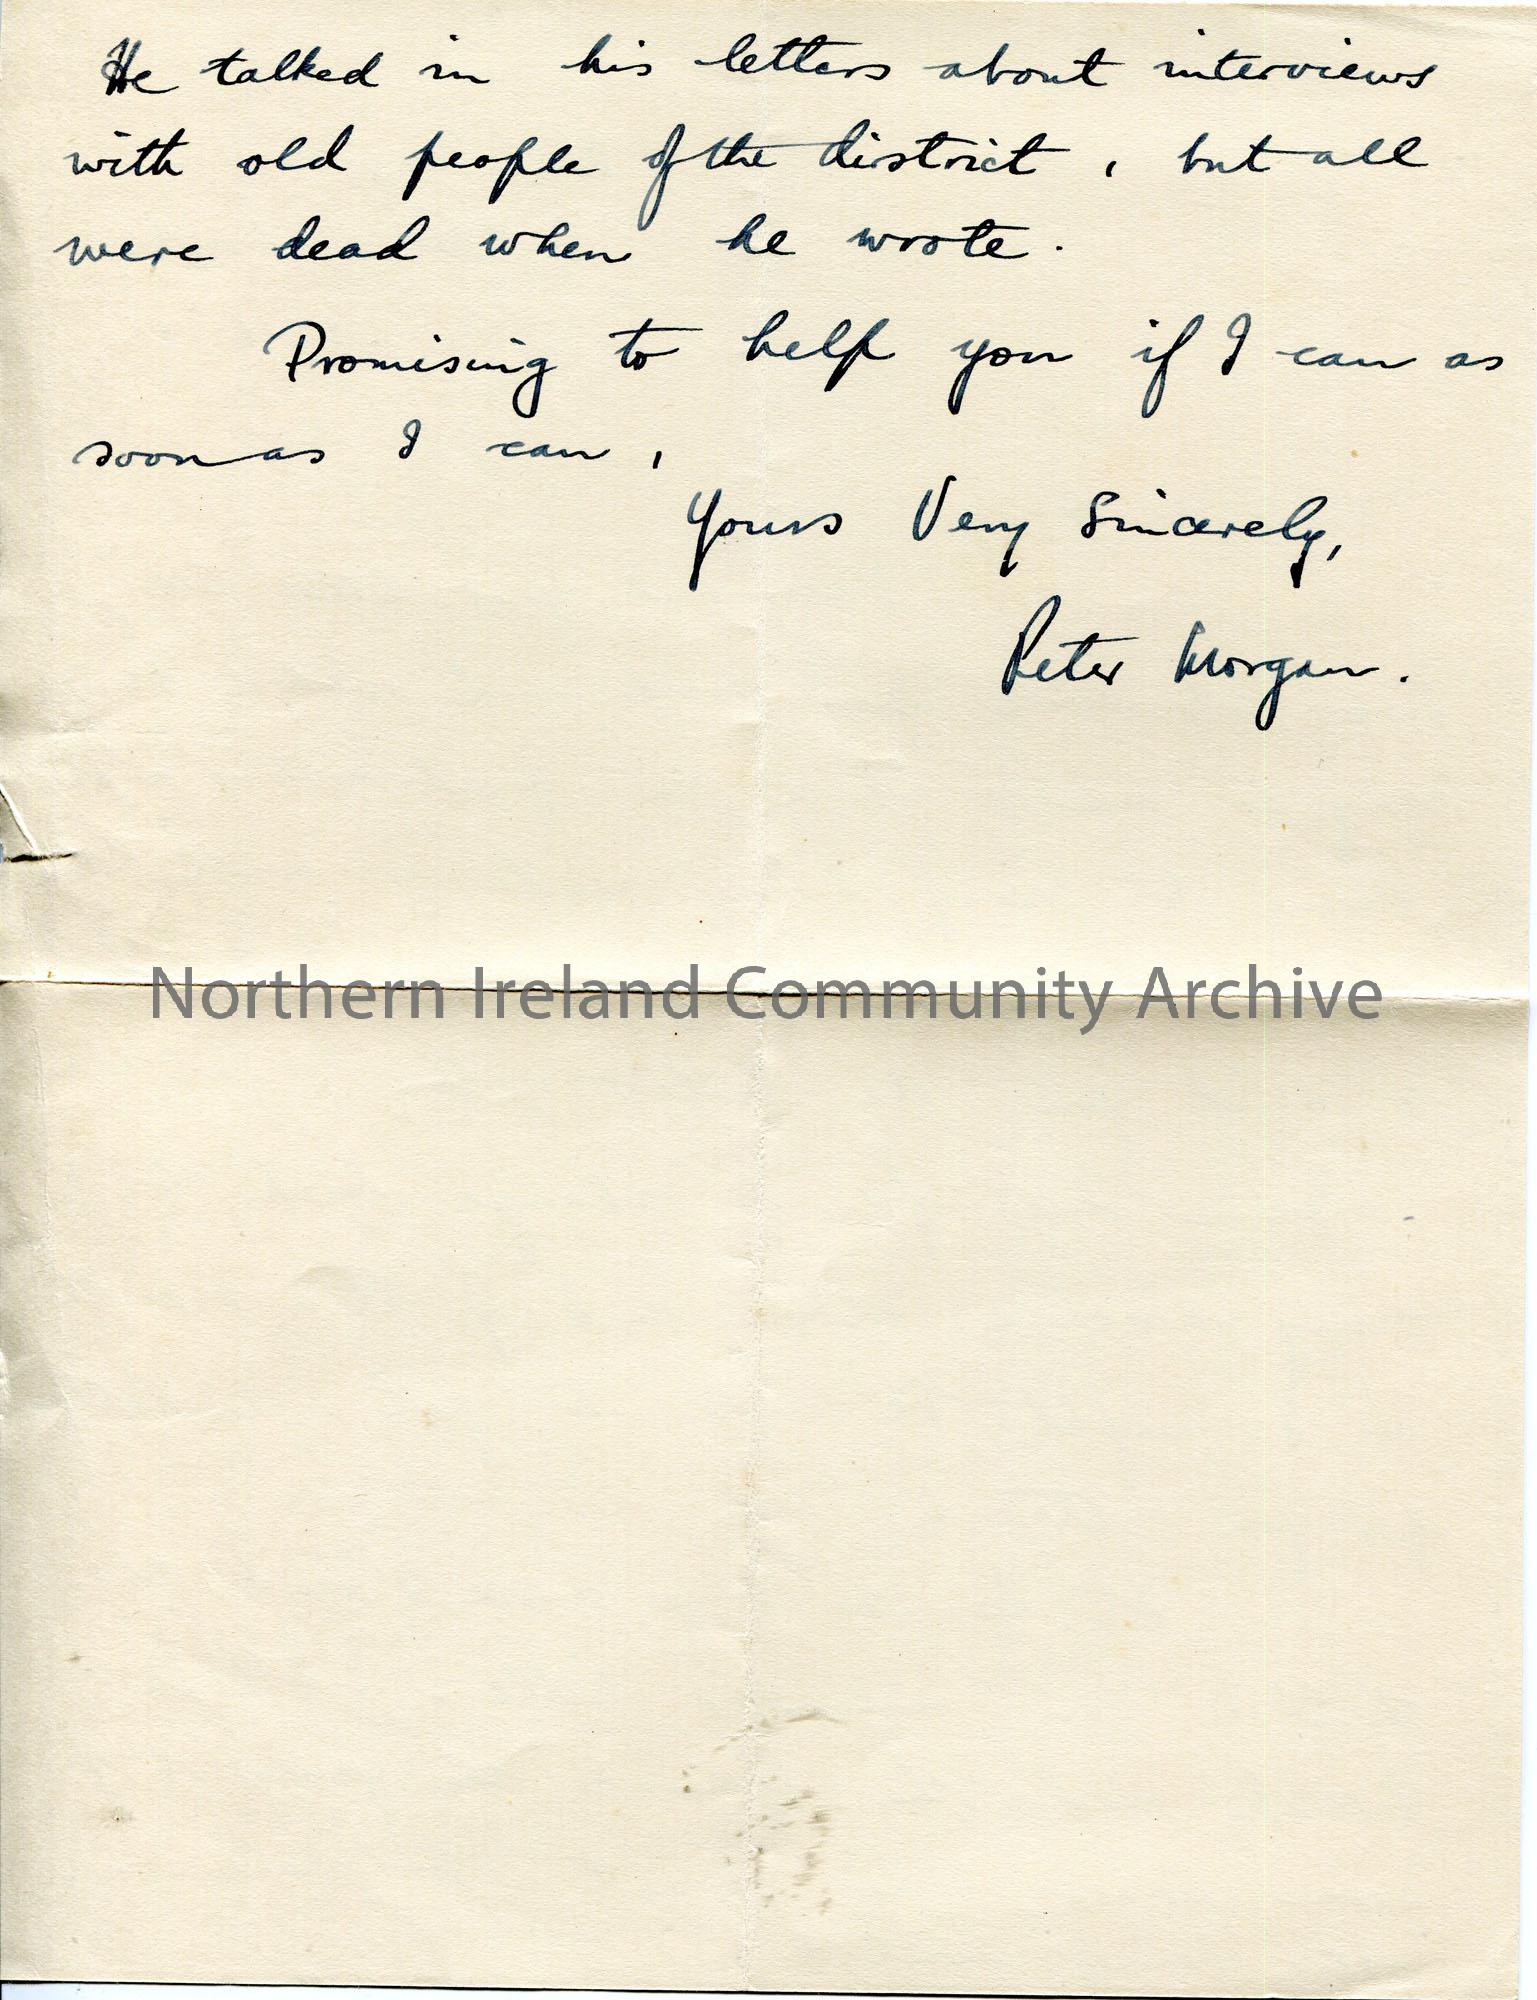 He talked in his letters about interviews
with old people of the district, but all
were dead when he wrote.
Promising to help you if I can as
soon as I can,
Yours Very Sincerely,
Peter Morgan.
Northern Ireland Community Archive